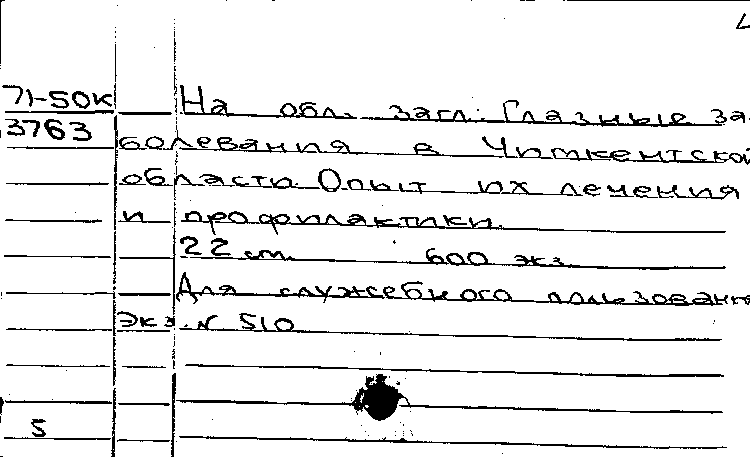 71-50к На обл. загл.: Глазные за-
3763 болевания в Чимкентской
области. Опыт их лечения
и профилактики.
22 см. 600 экз.
Для служебного пользован
экз. N 510
5